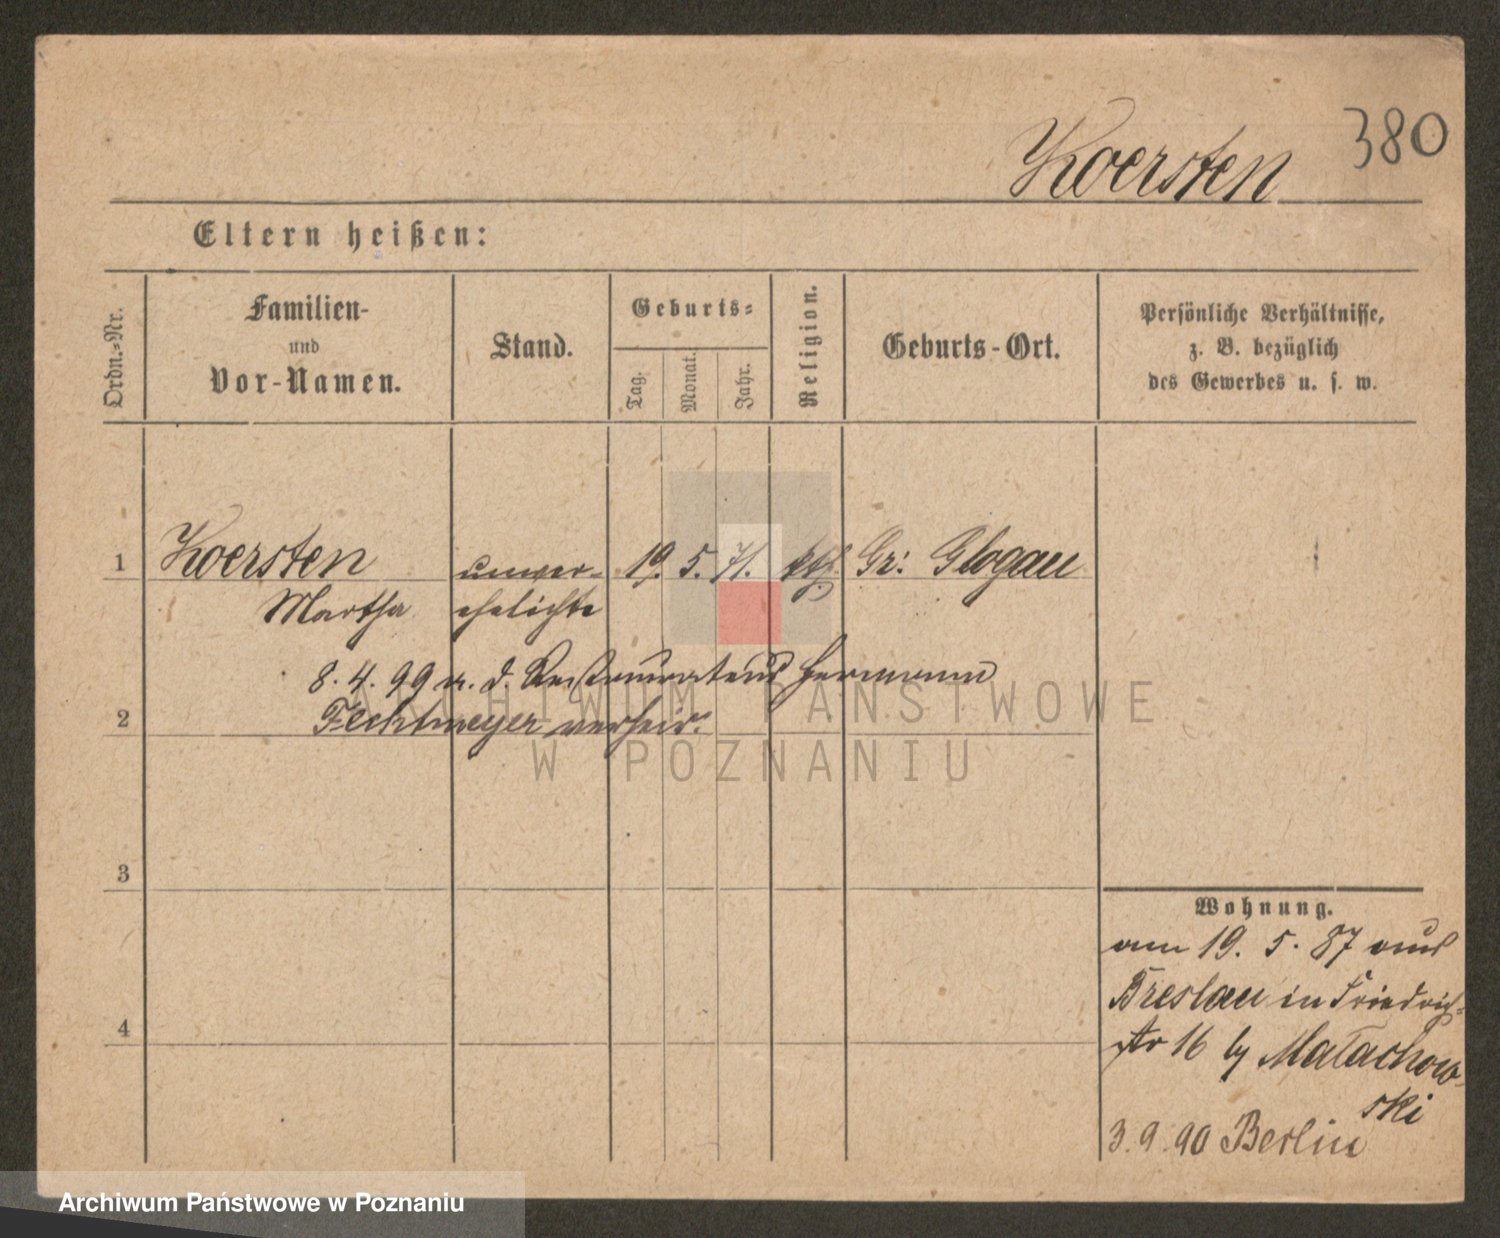 380
Koersten
Eltern heißen:
Ordn.-Nr.
Familien-
und
Vor-Namen.
Stand.
Geburts-
Tag.
Monat.
Jahr.
Religion.
Geburts-Ort.
Persönliche Verhältnisse,
z. B. bezüglich
des Gewerbes u. s. w.
1 Koersten unver- 19. 5. 71. kth. Gr: Glogau
Martha ehelichte
8. 4. 99 m. d. Restaurateur Hermann
2 Fechtmeyer verheir.
ARCHIWUM PAŃSTWOWE
W POZNANIU
3
Wohnung.
am 19. 5. 87 aus
Breslau in Friedrich-
4
str 16 by Malachow-
ski
3. 9. 90 Berlin
Archiwum Państwowe w Poznaniu